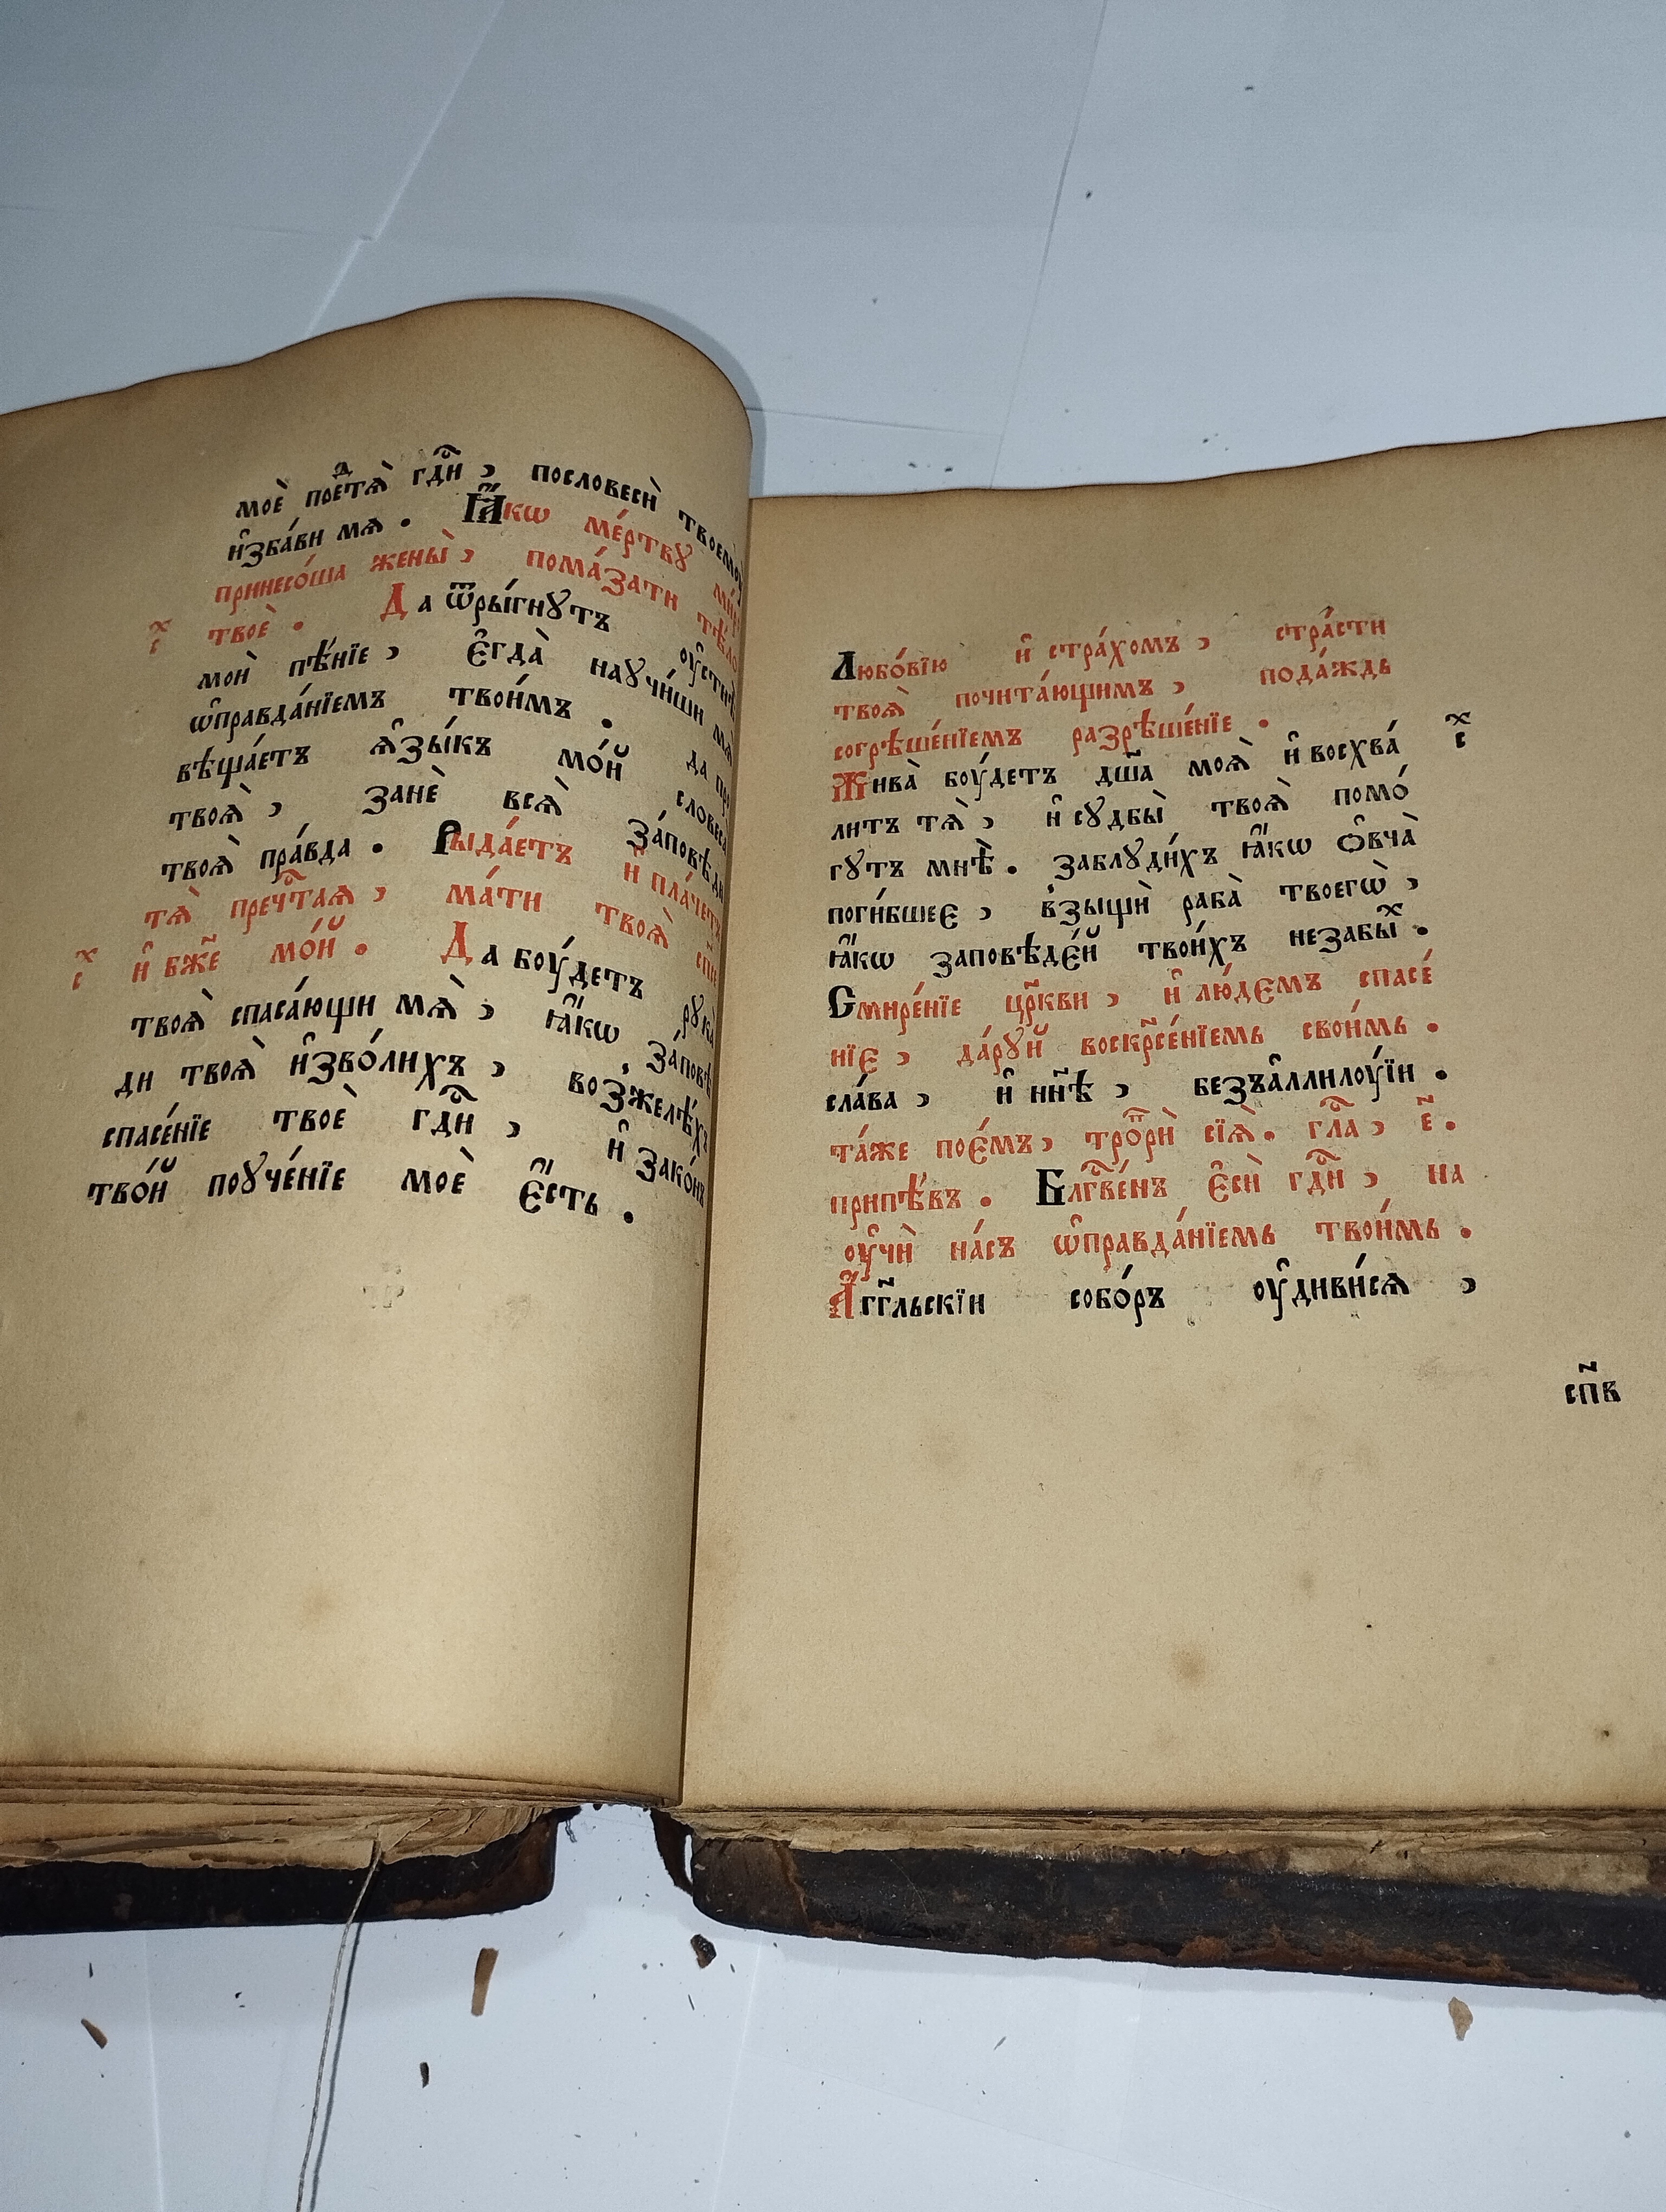 моѐ пое́тѧ̀ гдⷭ҇и , пословесѝ твоемꙋ̀
и҆зба́ви мѧ . Ꙗ҆́кѡ ме́ртвꙋ
принесо́ша жены̀ , пома́зати тѣ́ло
х҃с твоѐ . Да ѿры́гнꙋтъ оу҆стнѣ̀
моѝ пѣ́нїе , є҆гда̀ наꙋчи́ши мѧ̀
ѡ҆правда́нїемъ твои́мъ . да про
вѣща́етъ ѧ҆зы́къ мо́й словеса̀
твоѧ̀ , занѐ всѧ̀ за́повѣди
твоѧ̀ пра́вда . Рыда́етъ и҆ пла́четъ
тѧ̀ пречⷭ҇таѧ , ма́ти твоѧ̀ сп҃се
х҃с и҆ бж҃е мо́й . Да боу́детъ рꙋка̀
твоѧ̀ спаса́ющи мѧ̀ , ꙗ҆́кѡ за́повѣ
ди твоѧ̀ и҆зво́лихъ , возжелѣ́хъ
спасе́нїе твоѐ гдⷭ҇и , и҆ зако́нъ
тво́й поꙋче́нїе моѐ є҆́сть .
Любо́вїю и҆ стра́хомъ , стра́сти
твоѧ̀ почита́ющимъ , пода́ждь
согрѣше́нїемъ разрѣше́нїе .
Жива̀ боу́детъ дш҃а моѧ̀ и҆ восхва́ х҃с
литъ тѧ̀ , и҆ сꙋдбы̀ твоѧ̀ помо́
гꙋтъ мнѣ̀ . заблꙋди́хъ ꙗ҆́кѡ ѻ҆вча̀
поги́бшее , взыщѝ раба̀ твоегѡ̀ ,
ꙗ҆́кѡ заповѣде́й твои́хъ незабы́ⷯ .
Смире́нїе цр҃кви , и҆ лю́демъ спасе́
нїе , да́рꙋй воскрⷭ҇е́нїемь свои́мь .
сла́ва , и҆ нн҃ѣ , безъа҆ллилоу́їи .
та́же пое́мъ , тропⷬ҇рѝ сїѧ̀ . глⷭ҇а , є҃ .
припѣ́въ . Блгⷭ҇ве́нъ є҆сѝ гдⷭ҇и , на
оу҆чѝ на́съ ѡ҆правда́нїемь твои́мь .
А҆́гг҃льскїи собо́ръ оу҆диви́сѧ ,
сп҃в